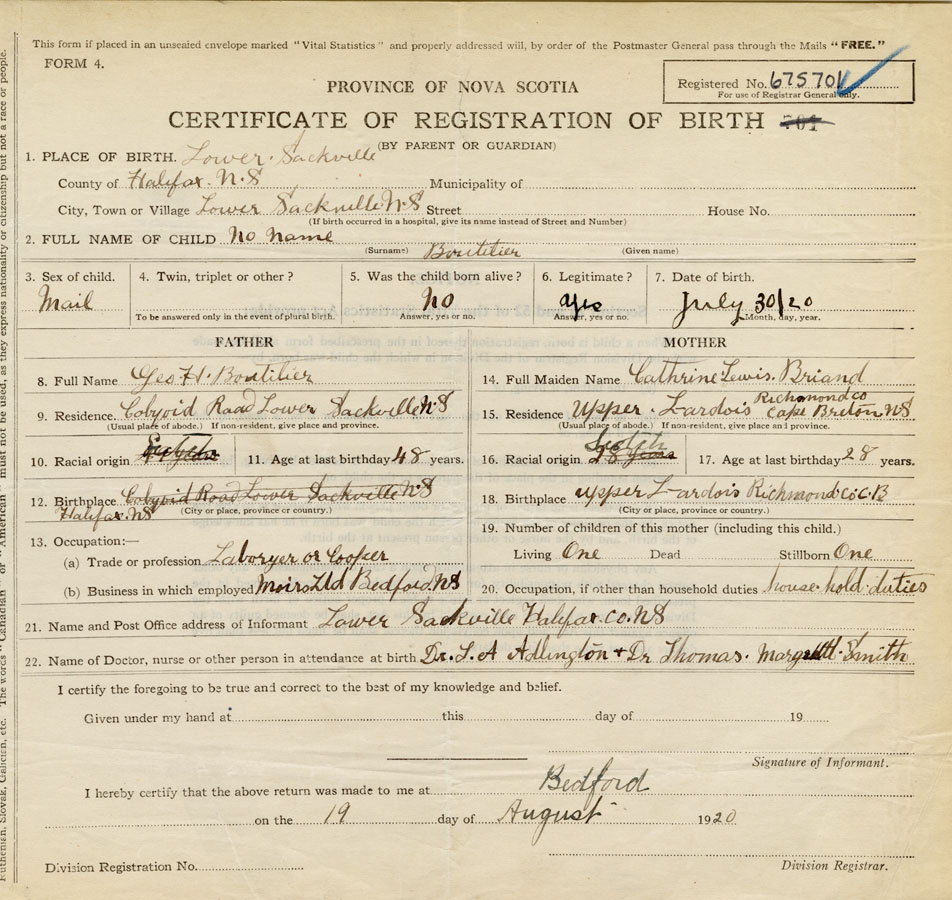 This form if placed in an unsealed envelope marked "Vital Statistics" and properly addressed will, by order of the Postmaster General pass through the Mails "FREE."
FORM 4.
Registered No. 675701
For use of Registrar General only.
PROVINCE OF NOVA SCOTIA
CERTIFICATE OF REGISTRATION OF BIRTH 701
(BY PARENT OR GUARDIAN)
1. PLACE OF BIRTH. Lower Sackville
County of Halifax. N.S Municipality of
City, Town or Village Lower Sackville N.S Street House No.
(If birth occurred in a hospital, give its name instead of Street and Number)
2. FULL NAME OF CHILD No Name
(Surname) Boutilier (Given name)
3. Sex of child. 4. Twin, triplet or other? 5. Was the child born alive? 6. Legitimate? 7. Date of birth.
Mail No yes July 30/20
To be answered only in the event of plural birth. Answer, yes or no. Answer, yes or no. Month, day, year.
FATHER MOTHER
8. Full Name Geo H. Boutilier
14. Full Maiden Name Cathrine Lewis. Briand
9. Residence. Cobyoid Road Lower Sackville N.S
(Usual place of abode.) If non-resident, give place and province.
15. Residence Upper Lardois Richmond co Cape Breton. N.S
(Usual place of abode.) If non-resident, give place and province.
10. Racial origin 11. Age at last birthday 48 years.
16. Racial origin 28 years 17. Age at last birthday 28 years.
12. Birthplace Cobyoid Road Lower Sackville N.S
Halifax. N.S (City or place, province or country.)
18. Birthplace upper Lardois Richmond co C.B
(City or place, province or country.)
13. Occupation:—
(a) Trade or profession Laboryer or Cooper
(b) Business in which employed Moirs Ltd Bedford. N.S
19. Number of children of this mother (including this child.)
Living One Dead Stillborn One
20. Occupation, if other than household duties house hold duties
21. Name and Post Office address of Informant Lower Sackville Halifax. Co. N.S
22. Name of Doctor, nurse or other person in attendance at birth Dr. L. A Adlington + Dr Thomas. Smith
I certify the foregoing to be true and correct to the best of my knowledge and belief.
Given under my hand at this day of 19
Signature of Informant.
I hereby certify that the above return was made to me at Bedford
on the 19 day of August 1920
Division Registration No. Division Registrar.
Ruthenian, Slovak, Galician, etc. The words "Canadian" or "American" must not be used, as they express nationality or citizenship but not a race or people.